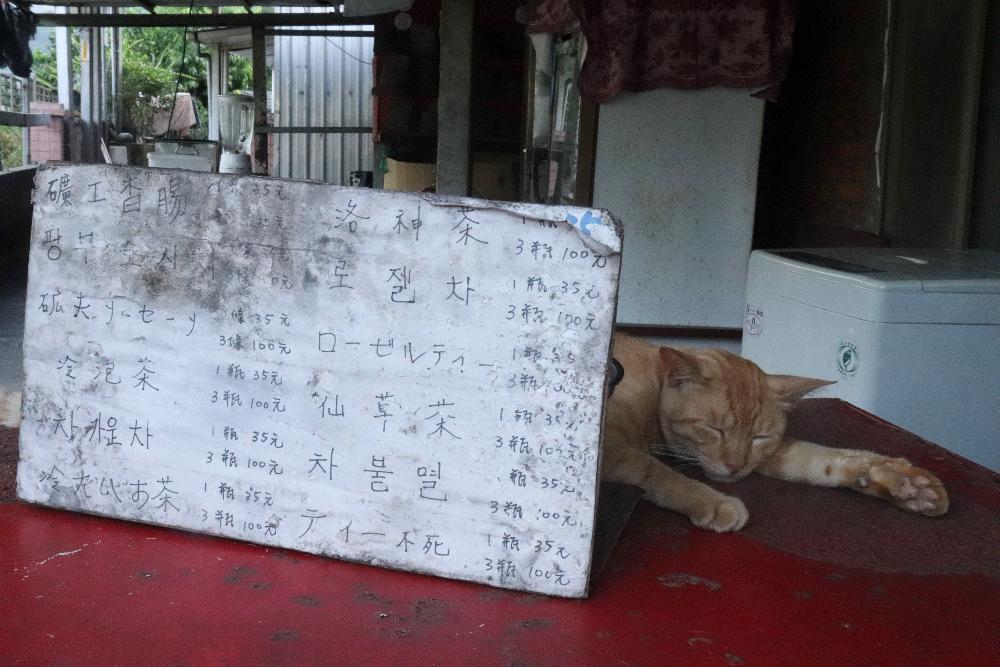 礦工香腸 35元
광부소시지
礦夫ソーセージ 1條 35元
3條 100元
冷泡茶 1瓶 35元
3瓶 100元
차가운차 1瓶 35元
3瓶 100元
冷たいお茶 1瓶 35元
3瓶 100元
洛神茶
3瓶 100元
로젤차 1瓶 35元
3瓶 100元
ローゼルティー 1瓶 35
3瓶
仙草茶 1瓶 35元
3瓶 100元
차불멸 瓶 35元
3瓶 100元
ティー不死 1瓶 35元
3瓶 100元